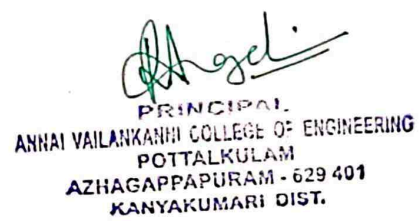 PRINCIPAL
ANNAI VAILANKANNI COLLEGE OF ENGINEERING
POTTALKULAM
AZHAGAPPAPURAM - 629 401
KANYAKUMARI DIST.